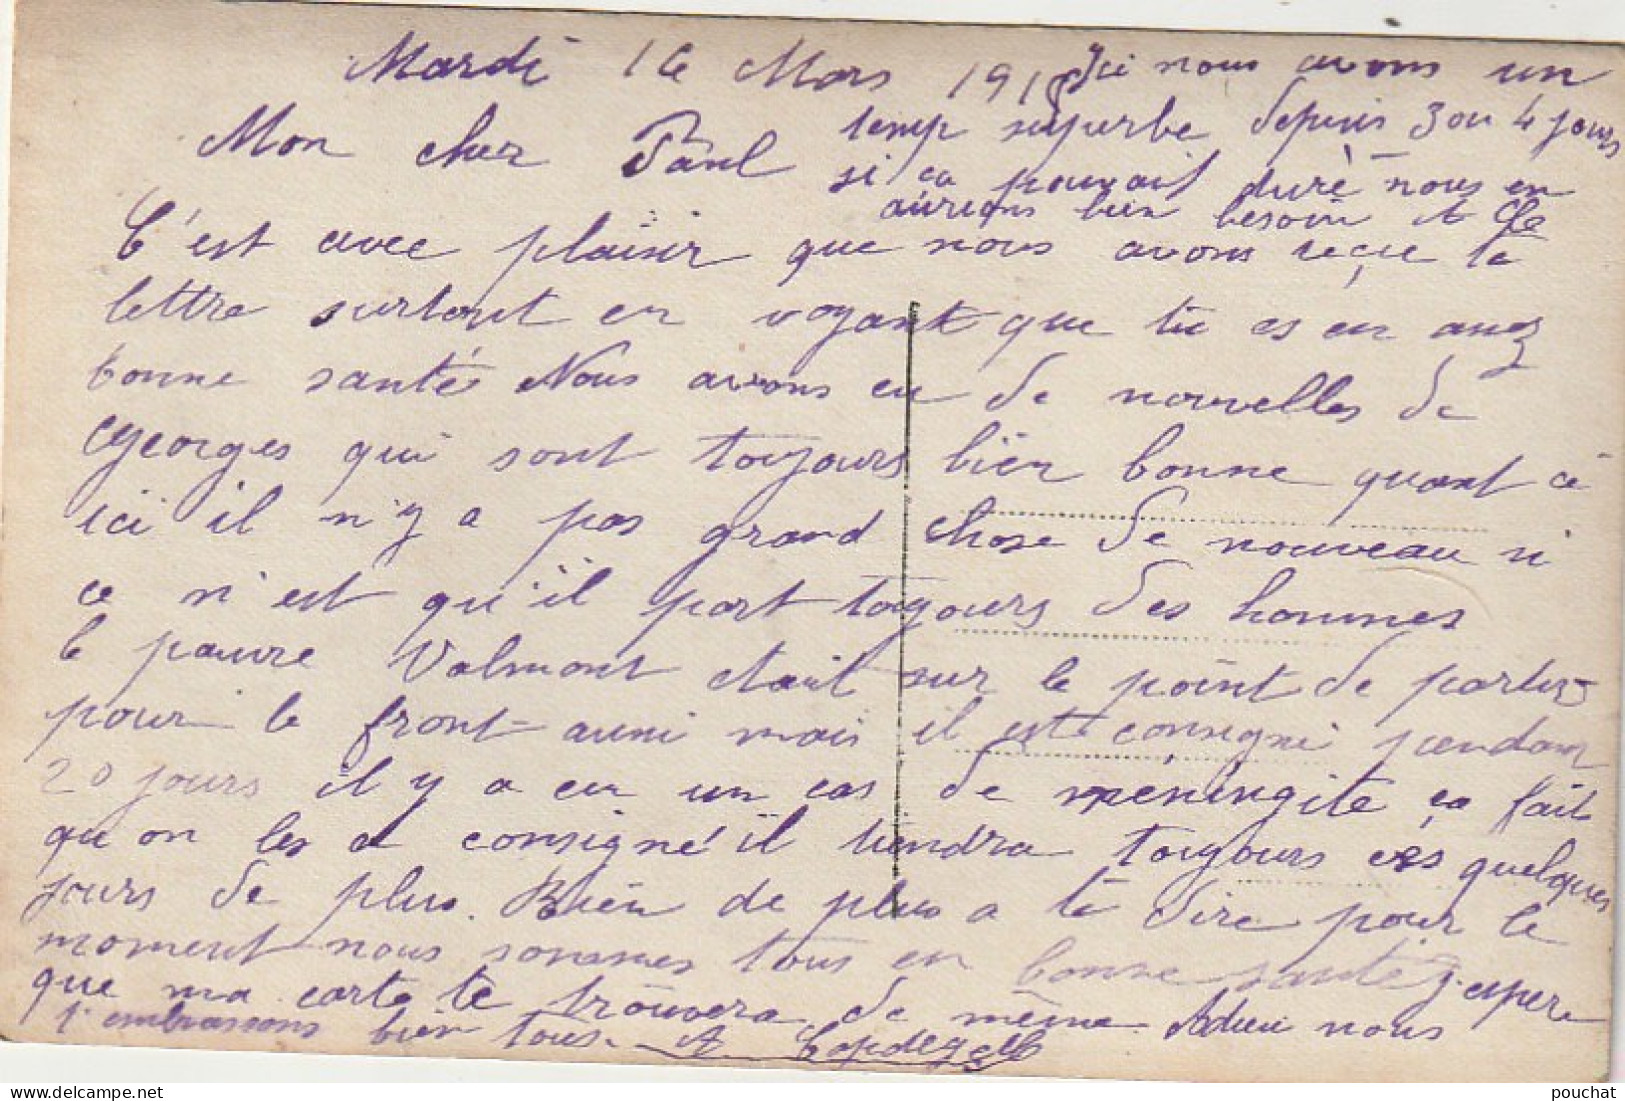 Mardi 16 Mars 191
Mon cher Paul
C'est avec plaisir que nous avons reçue ta
lettre surtout en voyant que tu es en assez
bonne santé Nous avons eu de nouvelles de
Georges qui sont toujours bien bonne quant à
ici il n'y a pas grand chose de nouveau si
ce n'est qu'il part toujours des hommes
le pauvre Valmont était sur le point de partir
pour le front aussi mais il est consigné pendant
20 jours il y a eu un cas de méningite ça fait
qu'on les a consigné il tiendra toujours ces quelques
jours de plus. Rien de plus a te dire pour le
moment nous sommes tous en bonne santé j'espère
que ma carte te trouvera de même Adieu nous
t'embrassons bien tous.
Ici nous avons un
temp superbe depuis 3 ou 4 jours
si ca pouvait duré nous en
aurions bien besoin
pouchat